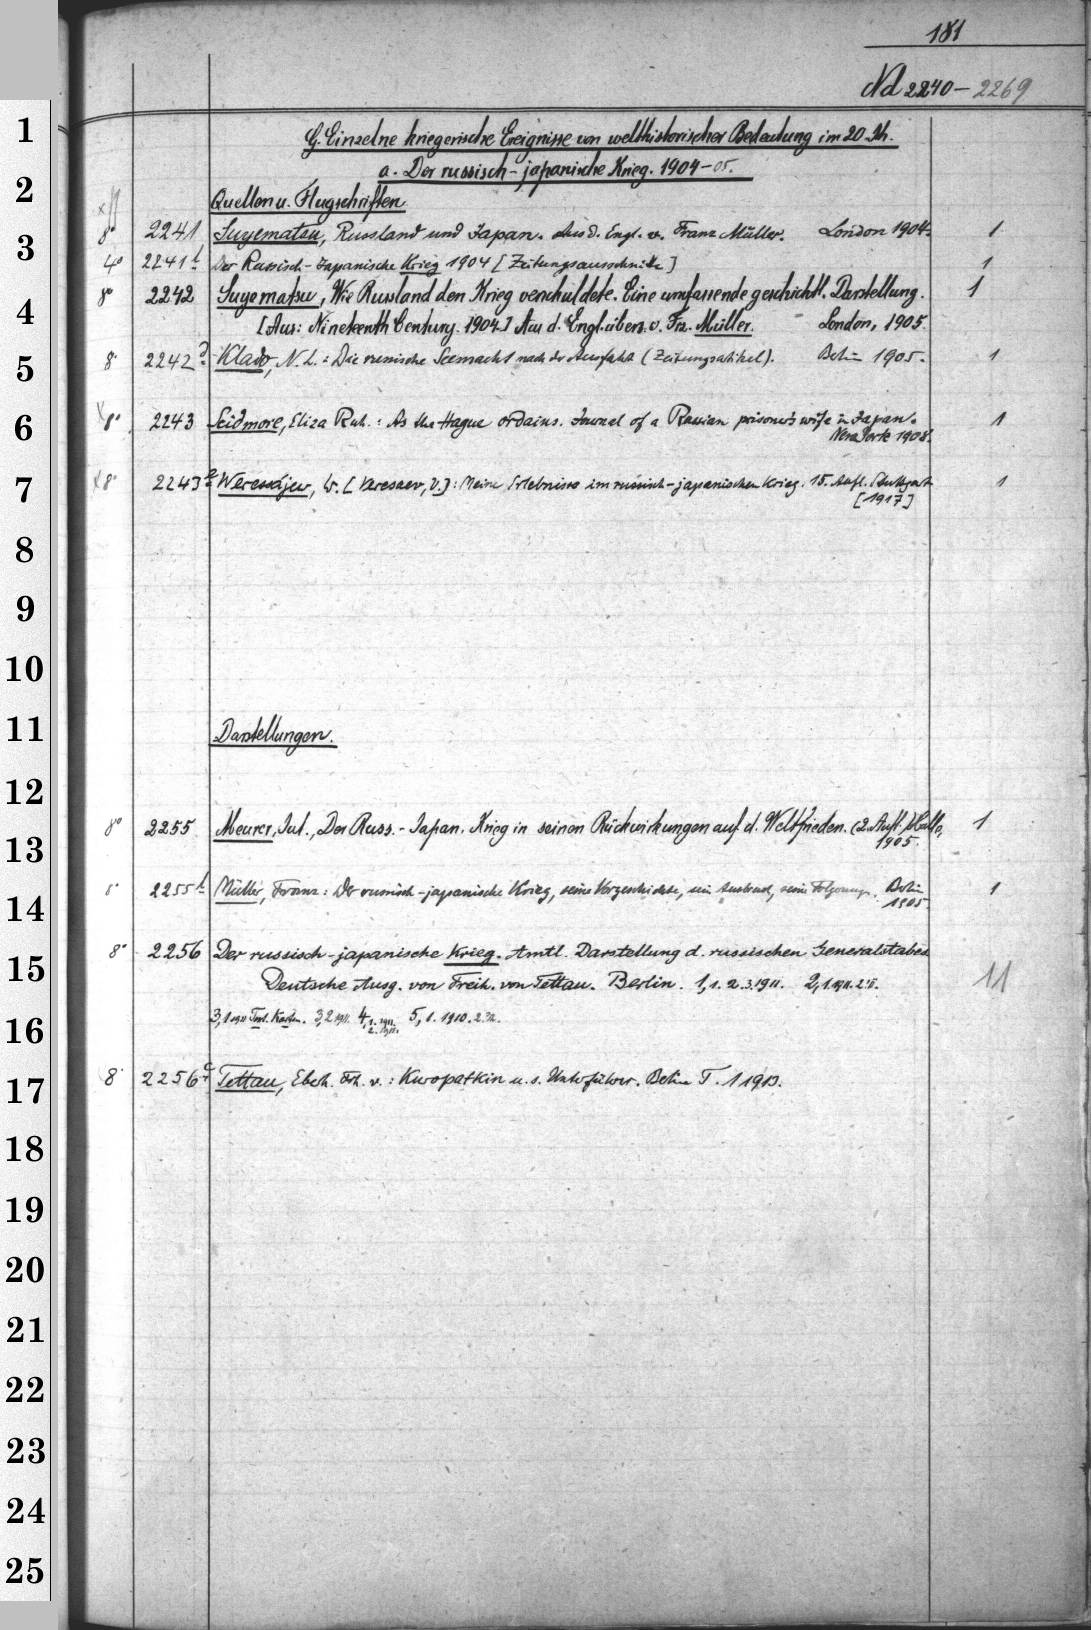 181
Nd 2240-2269
G. Einzelne kriegerische Ereignisse von welthistorischer Bedeutung im 20. Jh.
a. Der russisch-japanische Krieg. 1904-05.
Quellen u. Flugschriften
8° 2241 Suyematsu, Russland und Japan. Aus d. Engl. v. Franz Müller. London 1904. 1
4° 2241 b Der Russisch-Japanische Krieg 1904 [Zeitungsausschnitte] 1
8° 2242 Suyematsu, Wie Russland den Krieg verschuldete. Eine umfassende geschichtl. Darstellung. 1
[Aus: Nineteenth Century. 1904.] Aus d. Engl. übers. v. Frz. Müller. London, 1905.
8° 2242 Klado, N. L.: Die russische Seemacht nach der Ausfahrt (Zeitungsartikel). Berlin 1905. 1
x8° 2243 Scidmore, Eliza Ruh.: As the Hague ordains. Journal of a Russian prisoner's wife in Japan. 1
New York 1908.
x8° 2243 a Weressájew, W. [Veresaev, V.]: Meine Erlebnisse im russisch-japanischen Krieg. 15. Aufl. Stuttgart 1
[1917]
Darstellungen.
8° 2255 Meurer, Jul., Der Russ.-Japan. Krieg in seinen Rückwirkungen auf d. Weltfrieden. (2. Aufl.) Halle, 1
1905.
8° 2255 b Müller, Franz: Der russisch-japanische Krieg, seine Vorgeschichte, sein Ausbruch, seine Folgerungen. Berlin 1
1905.
8° 2256 Der russisch-japanische Krieg. Amtl. Darstellung d. russischen Generalstabes
Deutsche Ausg. von Freih. von Tettau. Berlin. 1,1. 2. 3. 1911. 2,1 1911. 2. 11
3,1 1911 Text. Karten. 3,2 1911. 4,1. 1911. 2. 1911. 5,1. 1910. 2.
8° 2256 c Tettau, Eberh. Frh. v.: Kuropatkin u. s. Unterführer. Berlin T. 1 1913.
1
2
3
4
5
6
7
8
9
10
11
12
13
14
15
16
17
18
19
20
21
22
23
24
25